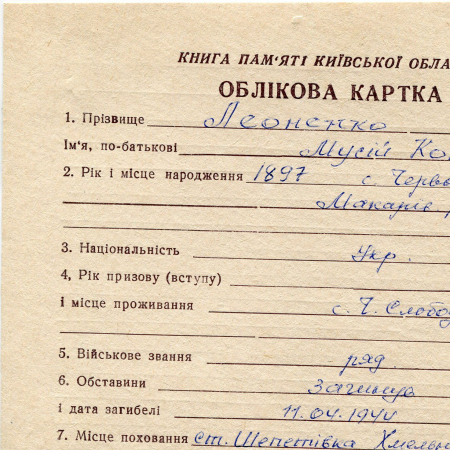 КНИГА ПАМ'ЯТІ КИЇВСЬКОЇ ОБЛА
ОБЛІКОВА КАРТКА
1. Прізвище Леоненко
Ім'я, по-батькові Мусій Ко
2. Рік і місце народження 1897 с. Черв
Макарів
3. Національність Укр.
4, Рік призову (вступу)
і місце проживання с. Ч. Слобо
5. Військове звання ряд.
6. Обставини Загинув
і дата загибелі 11.04.1944
7. Місце поховання ст. Шепетівка Хмельн